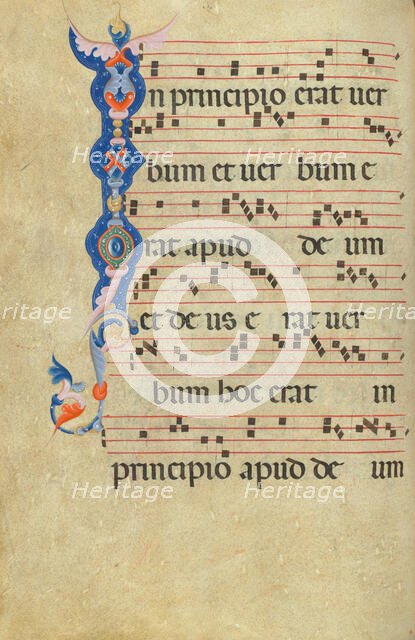 In principio erat uer
bum et uer bum e
rat apud de um
et de us e rat uer
bum hoc erat in
principio apud de um
Heritage Heritage Heritage
Heritage Heritage Heritage
Heritage Heritage Heritage